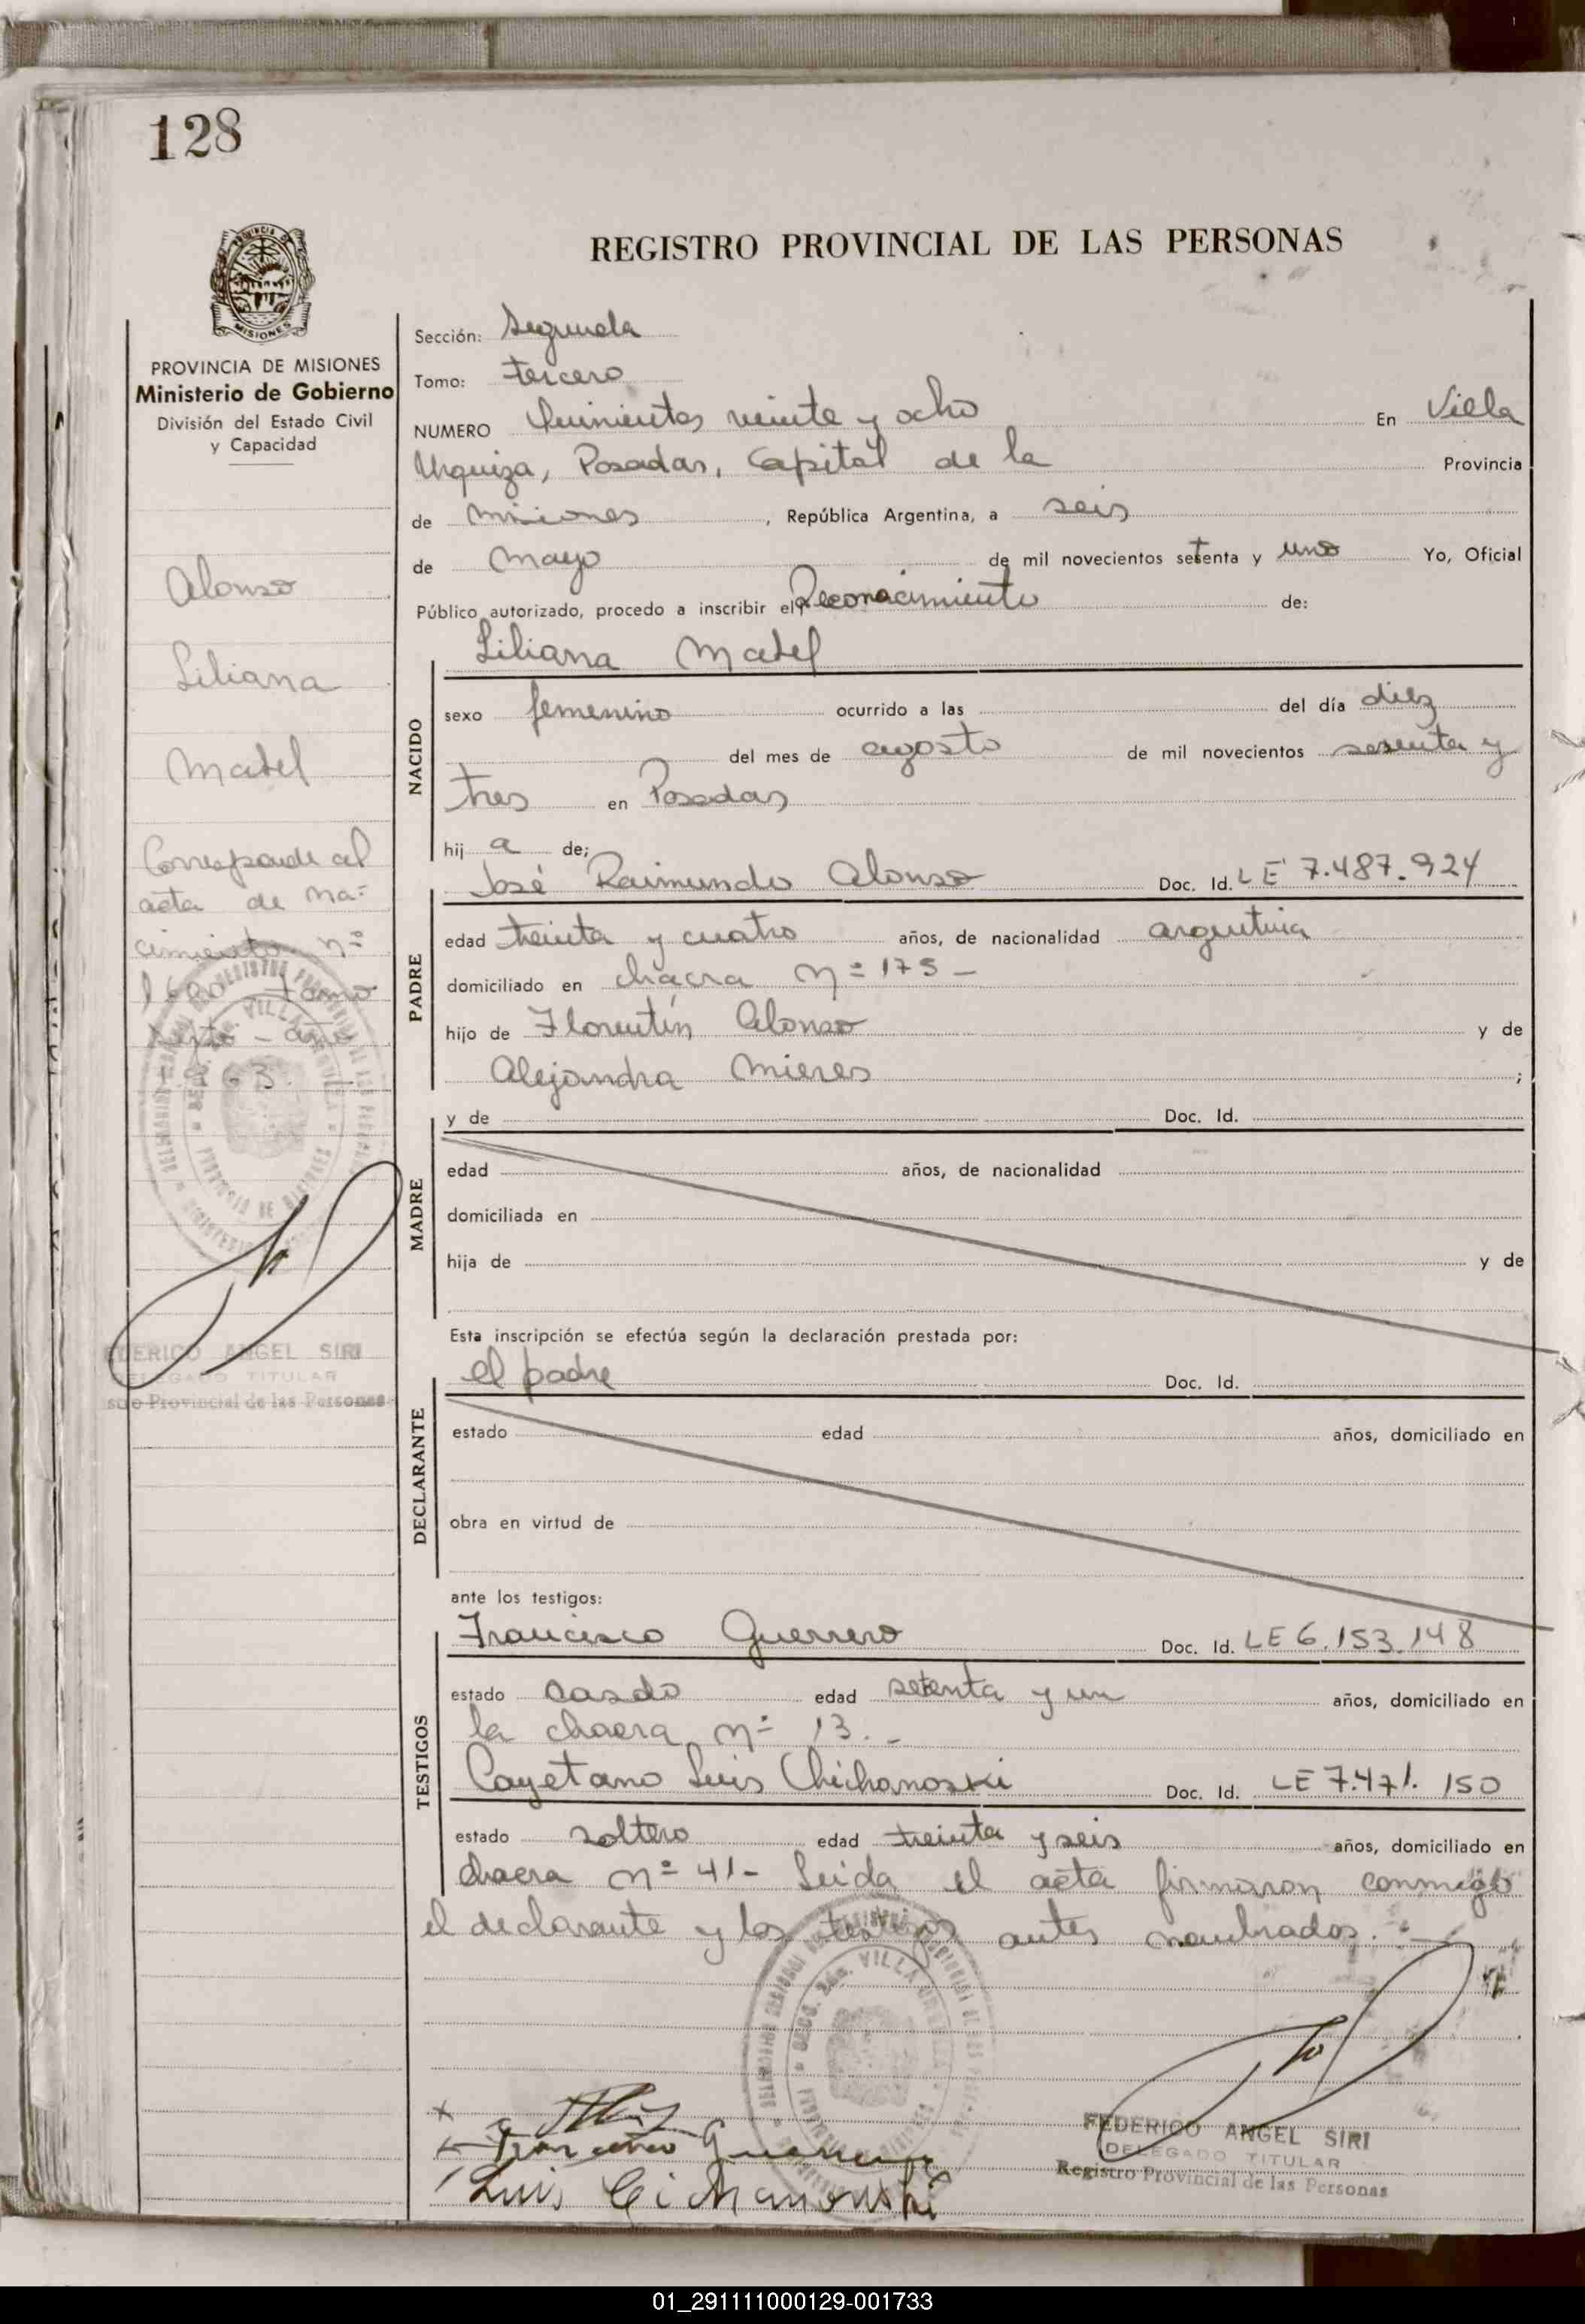 128
REGISTRO PROVINCIAL DE LAS PERSONAS
PROVINCIA DE MISIONES
Ministerio de Gobierno
División del Estado Civil
y Capacidad
Alonso
Liliana
Mabel
Corresponde al
acta de na=
cimiento nº
Tomo
sexto - año
1963.
FEDERICO ANGEL SIRI
DELEGADO TITULAR
Registro Provincial de las Personas
Sección: Segunda
Tomo: tercero
NUMERO Quinientos veinte y ocho En Villa
Urquiza, Posadas, Capital de la Provincia
de Misiones, República Argentina, a seis
de Mayo de mil novecientos setenta y uno Yo, Oficial
Público autorizado, procedo a inscribir el Reconocimiento de:
Liliana Mabel
NACIDO
sexo femenino ocurrido a las del día diez
del mes de agosto de mil novecientos sesenta y
tres en Posadas
hij a de;
José Raimundo Alonso Doc. Id. LE 7.487.924
PADRE
edad treinta y cuatro años, de nacionalidad argentina
domiciliado en chacra nº 175 -
hijo de Florentín Alonso y de
Alejandra Mieres ;
y de Doc. Id.
MADRE
edad años, de nacionalidad
domiciliada en
hija de y de
Esta inscripción se efectúa según la declaración prestada por:
el padre Doc. Id.
DECLARANTE
estado edad años, domiciliado en
obra en virtud de
ante los testigos:
Francisco Guerrero Doc. Id. LE 6.153.148
TESTIGOS
estado casado edad setenta y un años, domiciliado en
la chacra nº 13.-
Cayetano Luis Chichanoski Doc. Id. LE 7.471.150
estado soltero edad treinta y seis años, domiciliado en
chacra nº 41- Leida el acta firmaron conmigo
el declarante y los testigos antes nombrados.-
Francisco Guerrero
Luis Cichanowski
FEDERICO ANGEL SIRI
DELEGADO TITULAR
Registro Provincial de las Personas
01_291111000129-001733